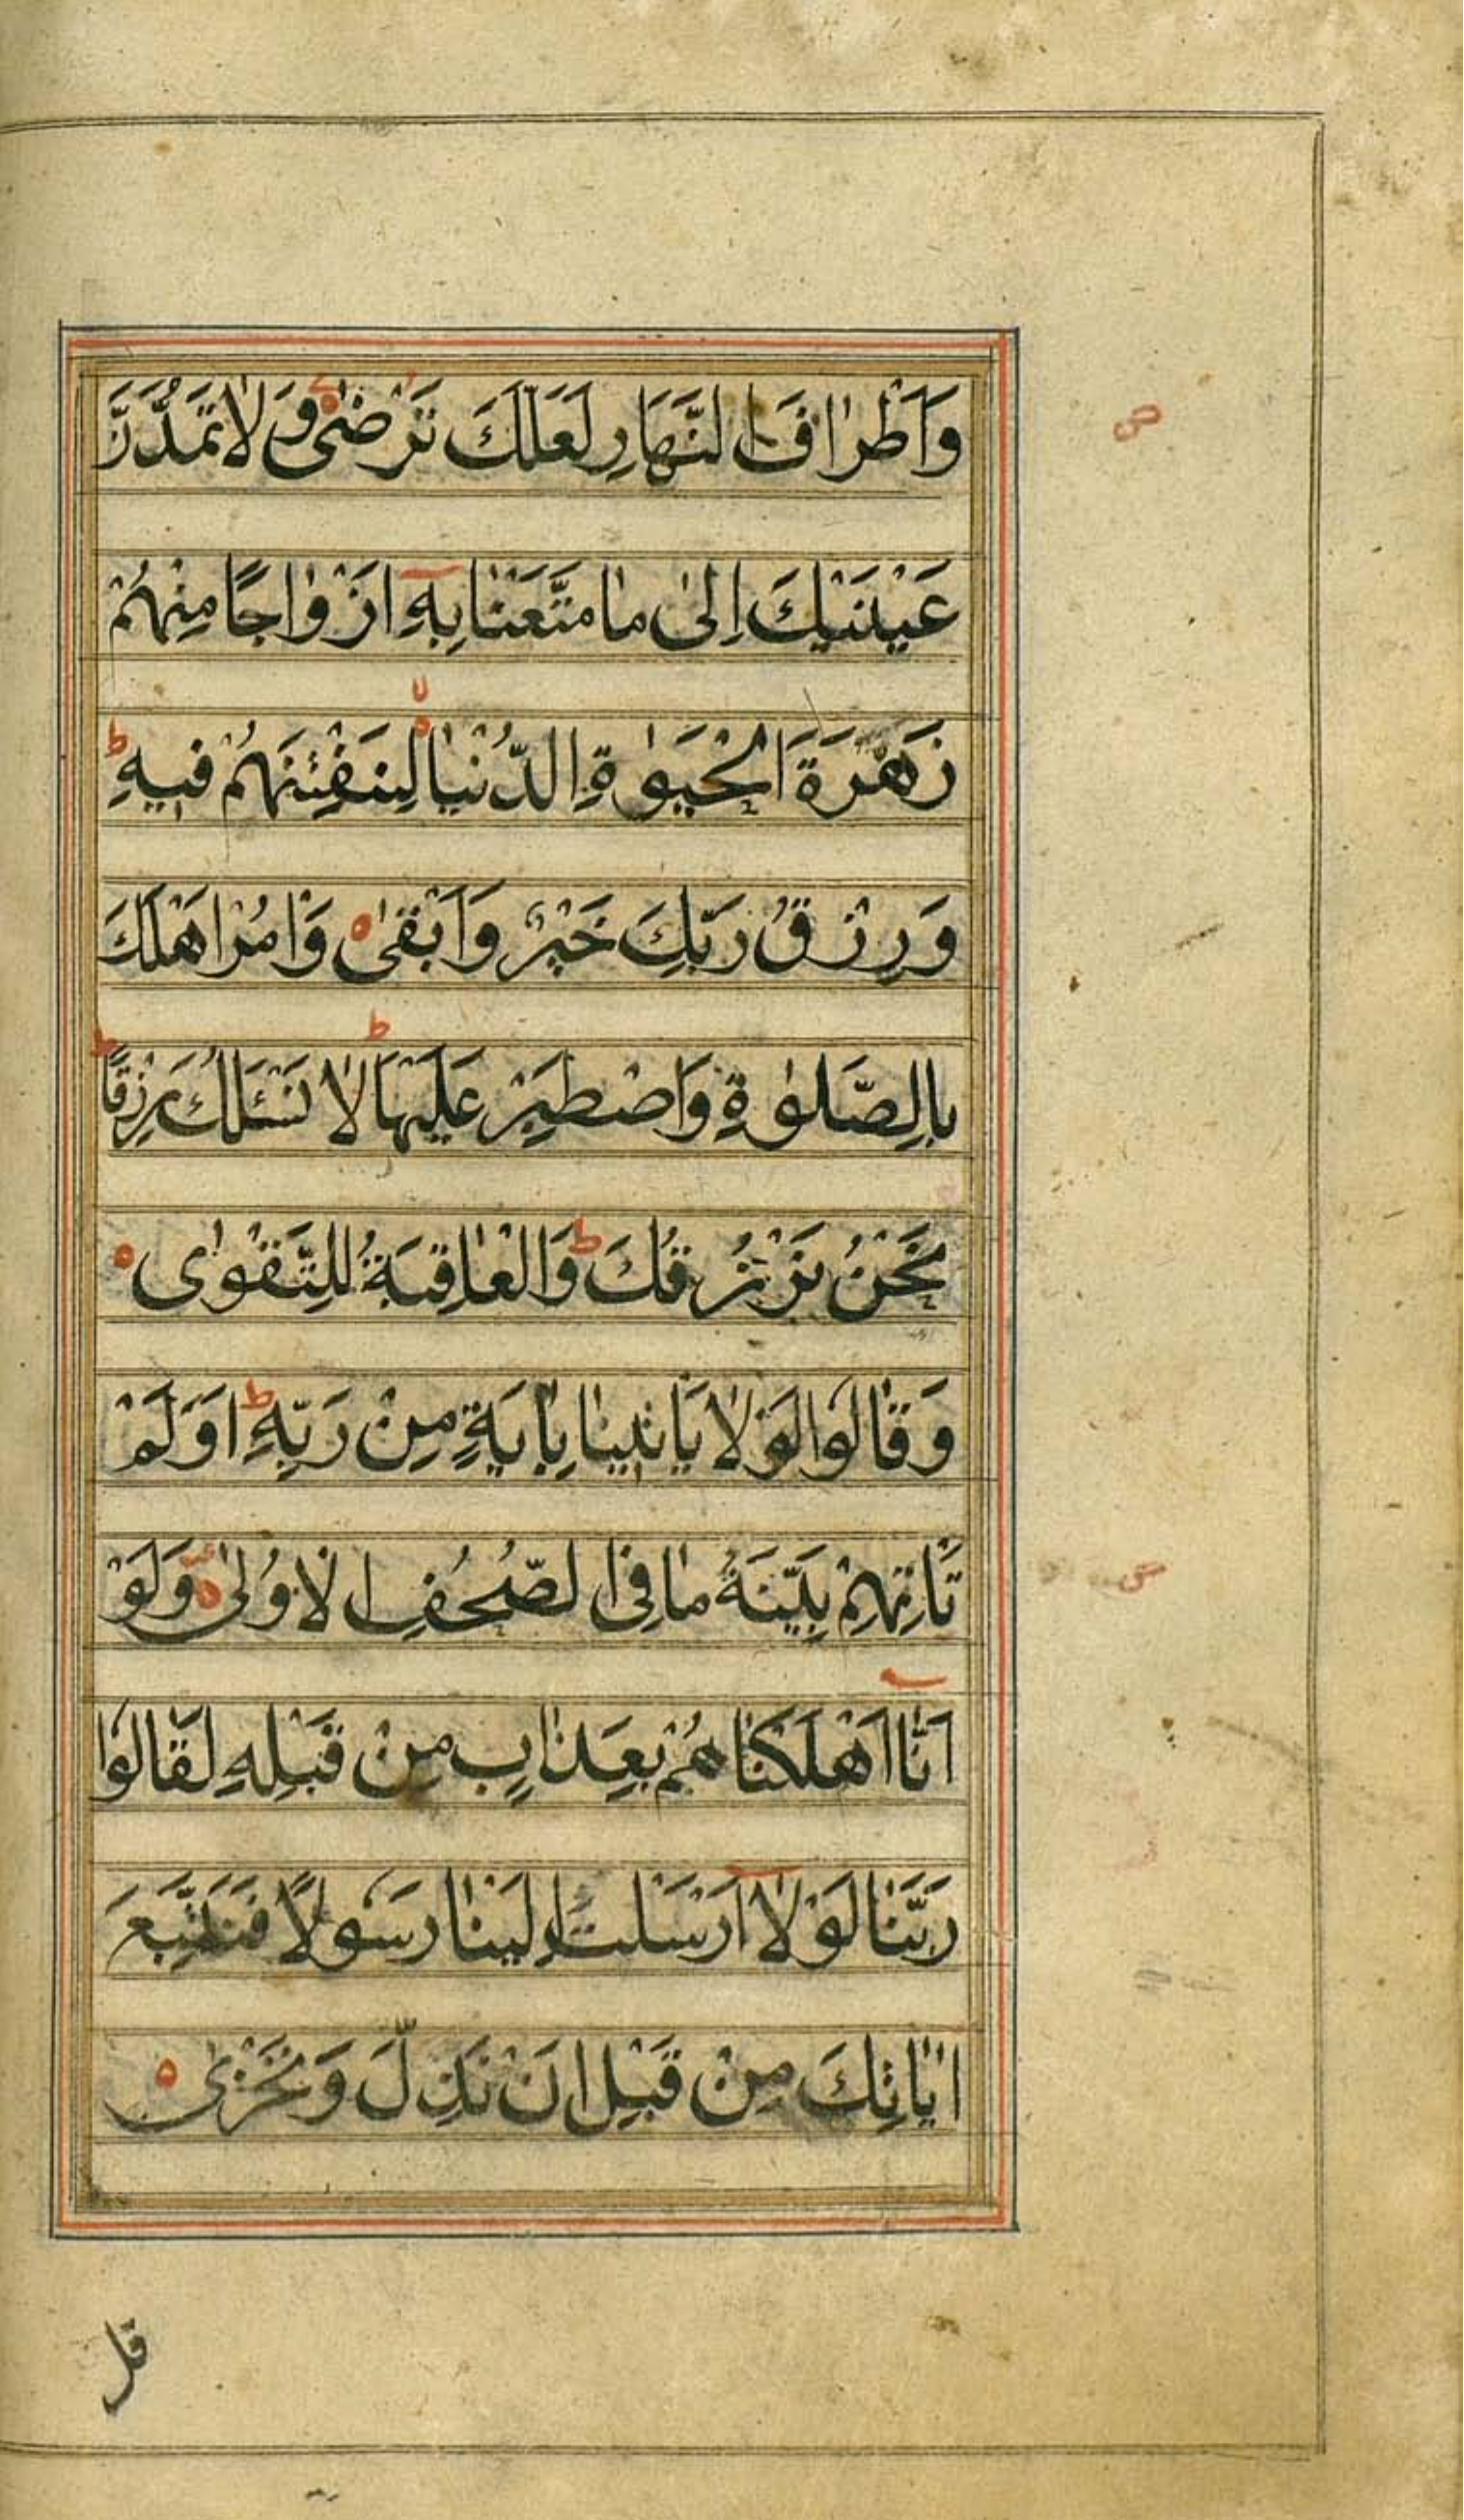 وَاَطْرٰافَ النَّهٰارِ لَعَلَّكَ تَرْضٰى وَلٰا تَمُدَّنَّ
عَيْنَيْكَ اِلىٰ مٰا مَتَّعْنٰا بِهِٓ اَزْوٰاجًا مِنْهُمْ
زَهْرَةَ الْحَيٰوةِ الدُّنْيٰا لِنَفْتِنَهُمْ فيهِ ط
وَرِزْقُ رَبِّكَ خَيْرٌ وَاَبْقىٰ ه وَاْمُرْ اَهْلَكَ
بِالصَّلٰوةِ وَاصْطَبِرْ عَلَيْهٰا ط لٰا نَسْئَلُكَ رِزْقًا ط
نَحْنُ نَرْزُقُكَ ط وَالْعٰاقِبَةُ لِلتَّقْوٰى ه
وَقٰالُوا لَوْلٰا يَاْتينٰا بِاٰيَةٍ مِنْ رَبِّهِ ط اَوَلَمْ
تَاْتِهِمْ بَيِّنَةُ مٰا فِى الصُّحُفِ الْاُولىٰ ه وَلَوْ
اَنّٰا اَهْلَكْنٰاهُمْ بِعَذٰابٍ مِنْ قَبْلِهِ لَقٰالُوا
رَبَّنٰا لَوْلٰٓا اَرْسَلْتَ اِلَيْنٰا رَسُولًا فَنَتَّبِعَ
اٰيٰاتِكَ مِنْ قَبْلِ اَنْ نَذِلَّ وَنَخْزٰى ه
قل